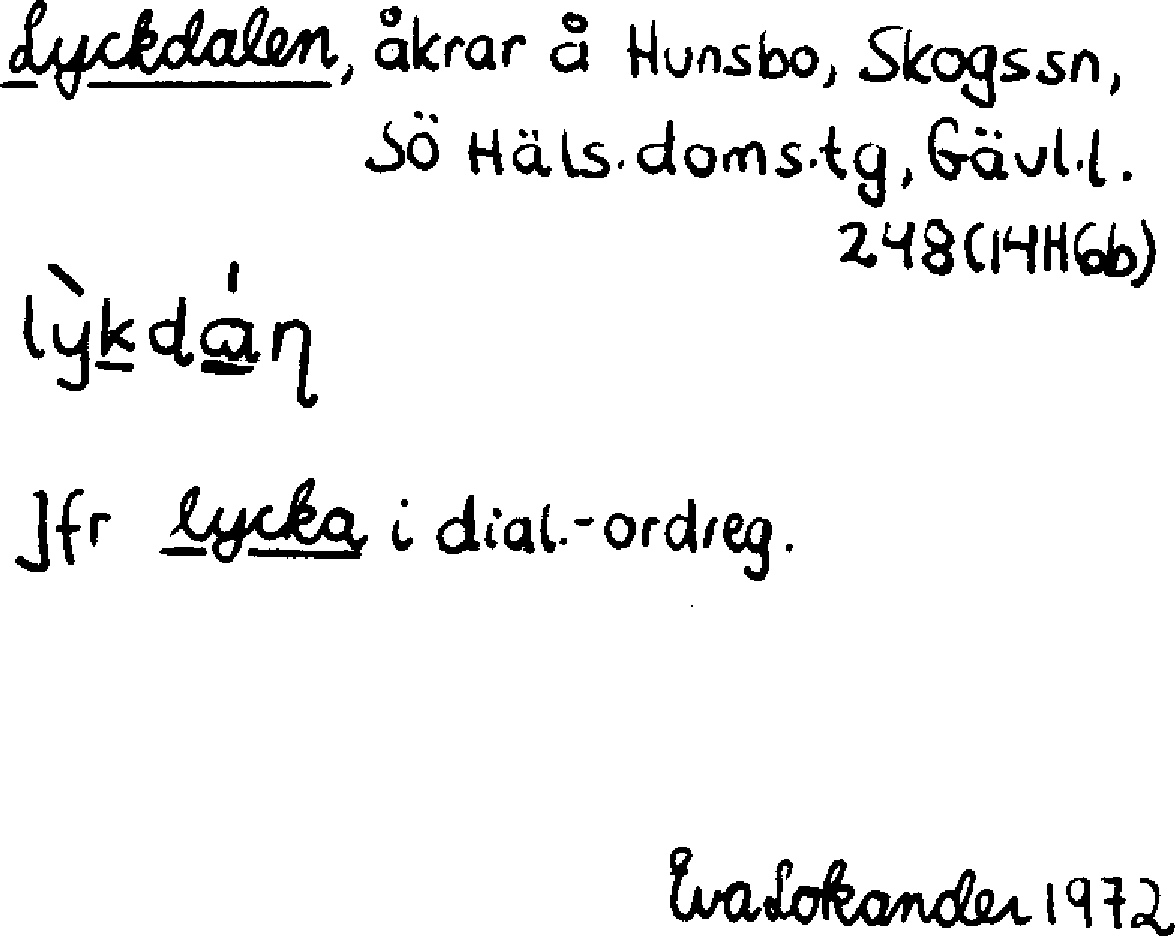 Lyckdalen, åkrar å Hunsbo, Skogssn,
Sö Häls.doms.tg, Gävl.l.
248 (14H6b)
lỳkdán
Jfr lycka i dial.-ordreg.
Eva Lokander 1972